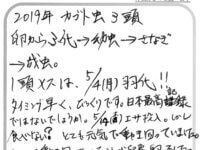 2019年 カブト虫 3頭
卵から3代→幼虫→さなぎ
→成虫。
1頭メスは、5/4(月)羽化!!
タイミング早く、びっくりです。日本最高記録
ではないでしょうか。5/14(金)エサ投入。しかし
食べない? とても元気で動き回っていました。